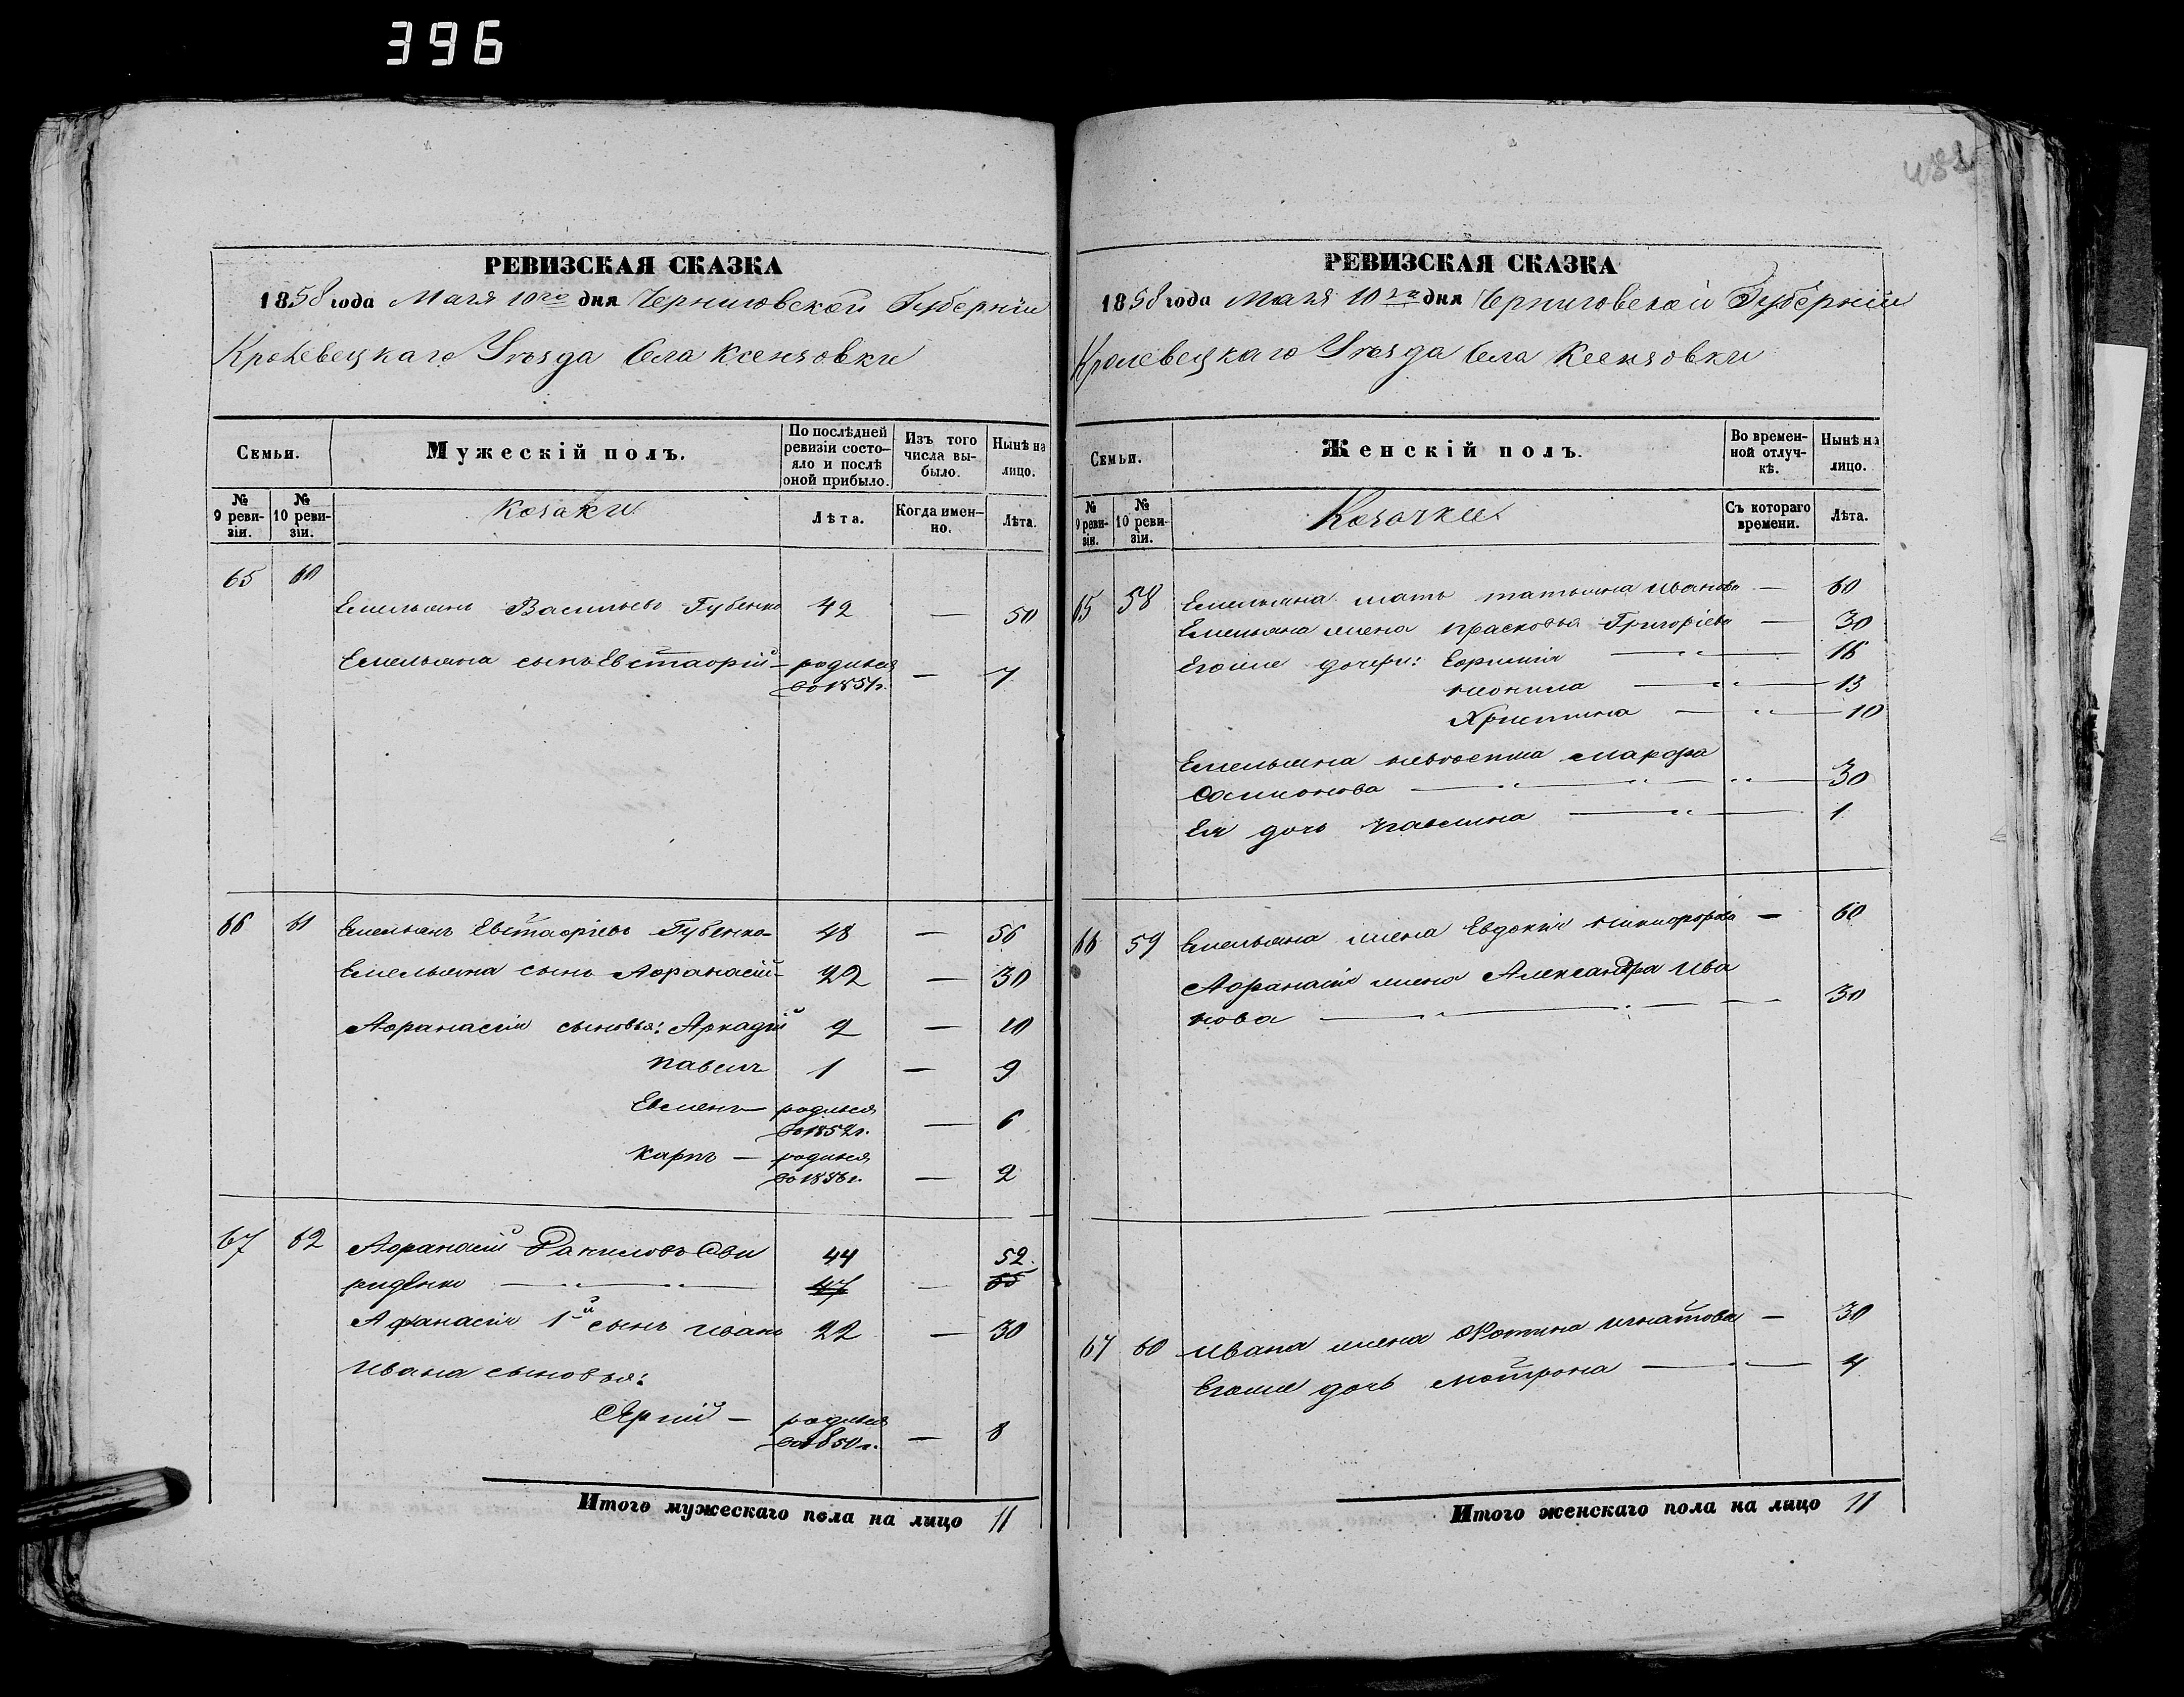 396
482
РЕВИЗСКАЯ СКАЗКА
1858 года Мая 10го дня Черниговской Губерніи
Кролевецкаго Уѣзда Села Ксензовки
Семьи.
Мужескій полъ.
По послѣдней ревизіи состо-
яло и послѣ оной прибыло.
Изъ того числа вы-
было.
Нынѣ на лицо.
№ 9 реви-
зіи.
№ 10 реви-
зіи.
Козаки
Лѣта.
Когда имен-
но.
Лѣта.
65 60
Емельянъ Васильевъ Губенко 42 — 50
Емельяна сынъ Евстафій — родился — 7
въ 1851г.
66 61 Емельянъ Евстафіевъ Губенко 48 — 56
Емельяна сынъ Афанасій — 22 — 30
Афанасія сыновья: Аркадій 2 — 10
Павелъ 1 — 9
Евменъ — родился — 6
въ 1852г.
Карпъ — родился — 2
въ 1856г.
67 62 Афанасій Даниловъ Сви 44 52.
риденко — 47 — 55
Афанасія 1й сынъ Иванъ 22 — 30
Ивана сыновья:
Сергій — родился — 8
въ 1850г.
Итого мужескаго пола на лицо 11
РЕВИЗСКАЯ СКАЗКА
1858 года Мая 10го дня Черниговской Губерніи
Кролевецкаго Уѣзда Села Ксензовки
Семьи.
Женскій полъ.
Во времен-
ной отлуч-
кѣ.
Нынѣ на лицо.
№ 9 реви-
зіи.
№ 10 реви-
зіи.
Козачки
Съ котораго времени.
Лѣта.
65 58 Емельяна мать Татьяна Иванова — 60
Емельяна жена Прасковья Григоріева — 30
Егоже дочери: Ефимія — 16
Неонила — 13
Христина — 10
Емельяна невѣстка Марфа
Самионова — 30
Ея дочь Павлина — 1
66 59 Емельяна жена Евдокія Никифорова — 60
Афанасія жена Александра Ива
нова — 30
67 60 Ивана жена Фотина Игнатова — 30
Егоже дочь Мотрона — 4
Итого женскаго пола на лицо 11